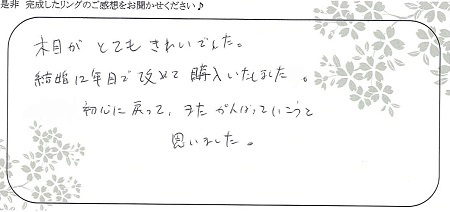 是非 完成したリングのご感想をお聞かせください♪
木目が とても きれいでした。
結婚12年目で 改めて 購入いたしました 。
初心に戻って、また がんばっていこうと
思いました。